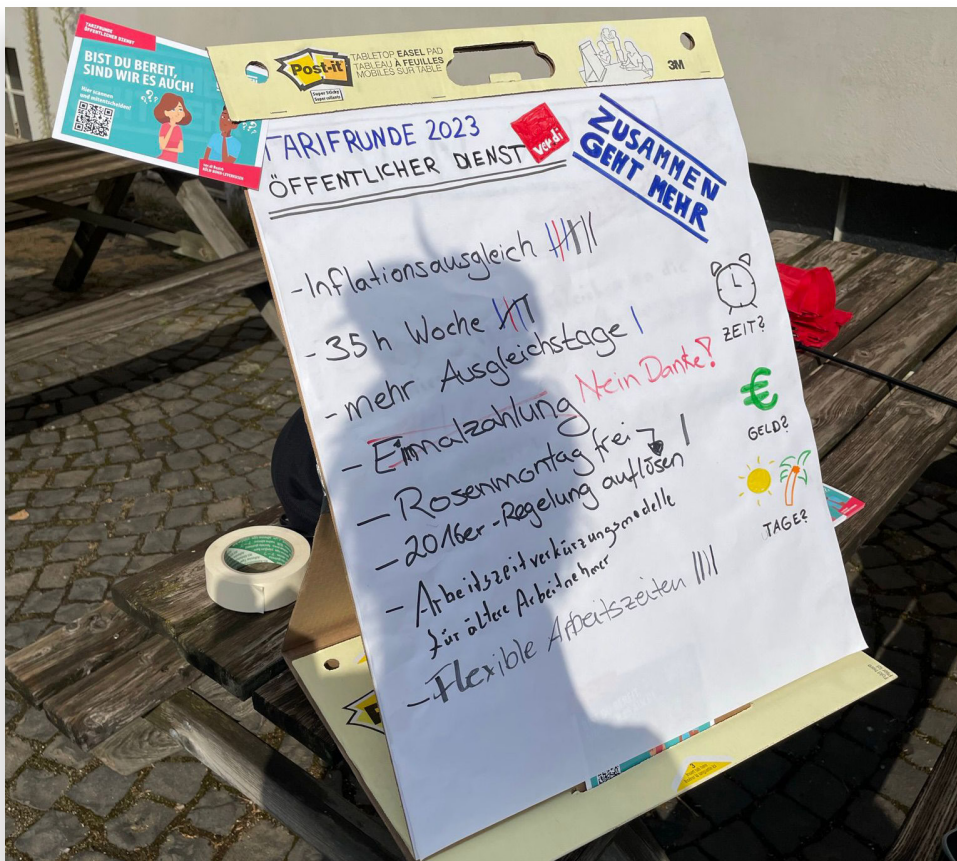 TARIFRUNDE
ÖFFENTLICHER DIENST
BIST DU BEREIT,
SIND WIR ES AUCH!
Hier scannen
und mitentscheiden!
Post-it
Super Sticky
TABLETOP EASEL PAD
TABLEAU À FEUILLES
MOBILES SUR TABLE
3M
TARIFRUNDE 2023
ÖFFENTLICHER DIENST
ver.di
ZUSAMMEN
GEHT MEHR
- Inflationsausgleich
- 35 h Woche
- mehr Ausgleichstage
- Einmalzahlung Nein Danke!
- Rosenmontag frei
- 2016er-Regelung auflösen
- Arbeitszeitverkürzungsmodelle
für ältere Arbeitnehmer
- Flexible Arbeitszeiten
ZEIT?
GELD?
TAGE?